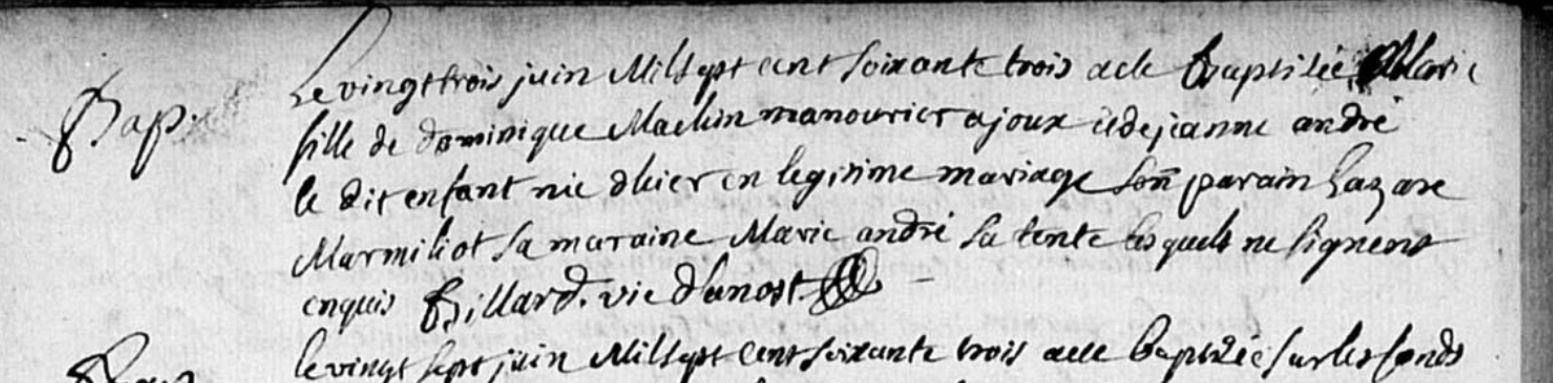 Bap.
Le vingt trois juin Mil Sept cent soixante trois a ete baptisée Marie
fille de dominique Machin manouvrier a joux et de jeanne andré
le dit enfant nie d'hier en legisime mariage son parain Lazare
Marmiliot sa maraine Marie andré sa tente lesquels ne signent
enquis Billard. vic d'anost
Bap
le vingt sept juin Mil Sept Cent soixante trois a ete baptizée sur les fonds